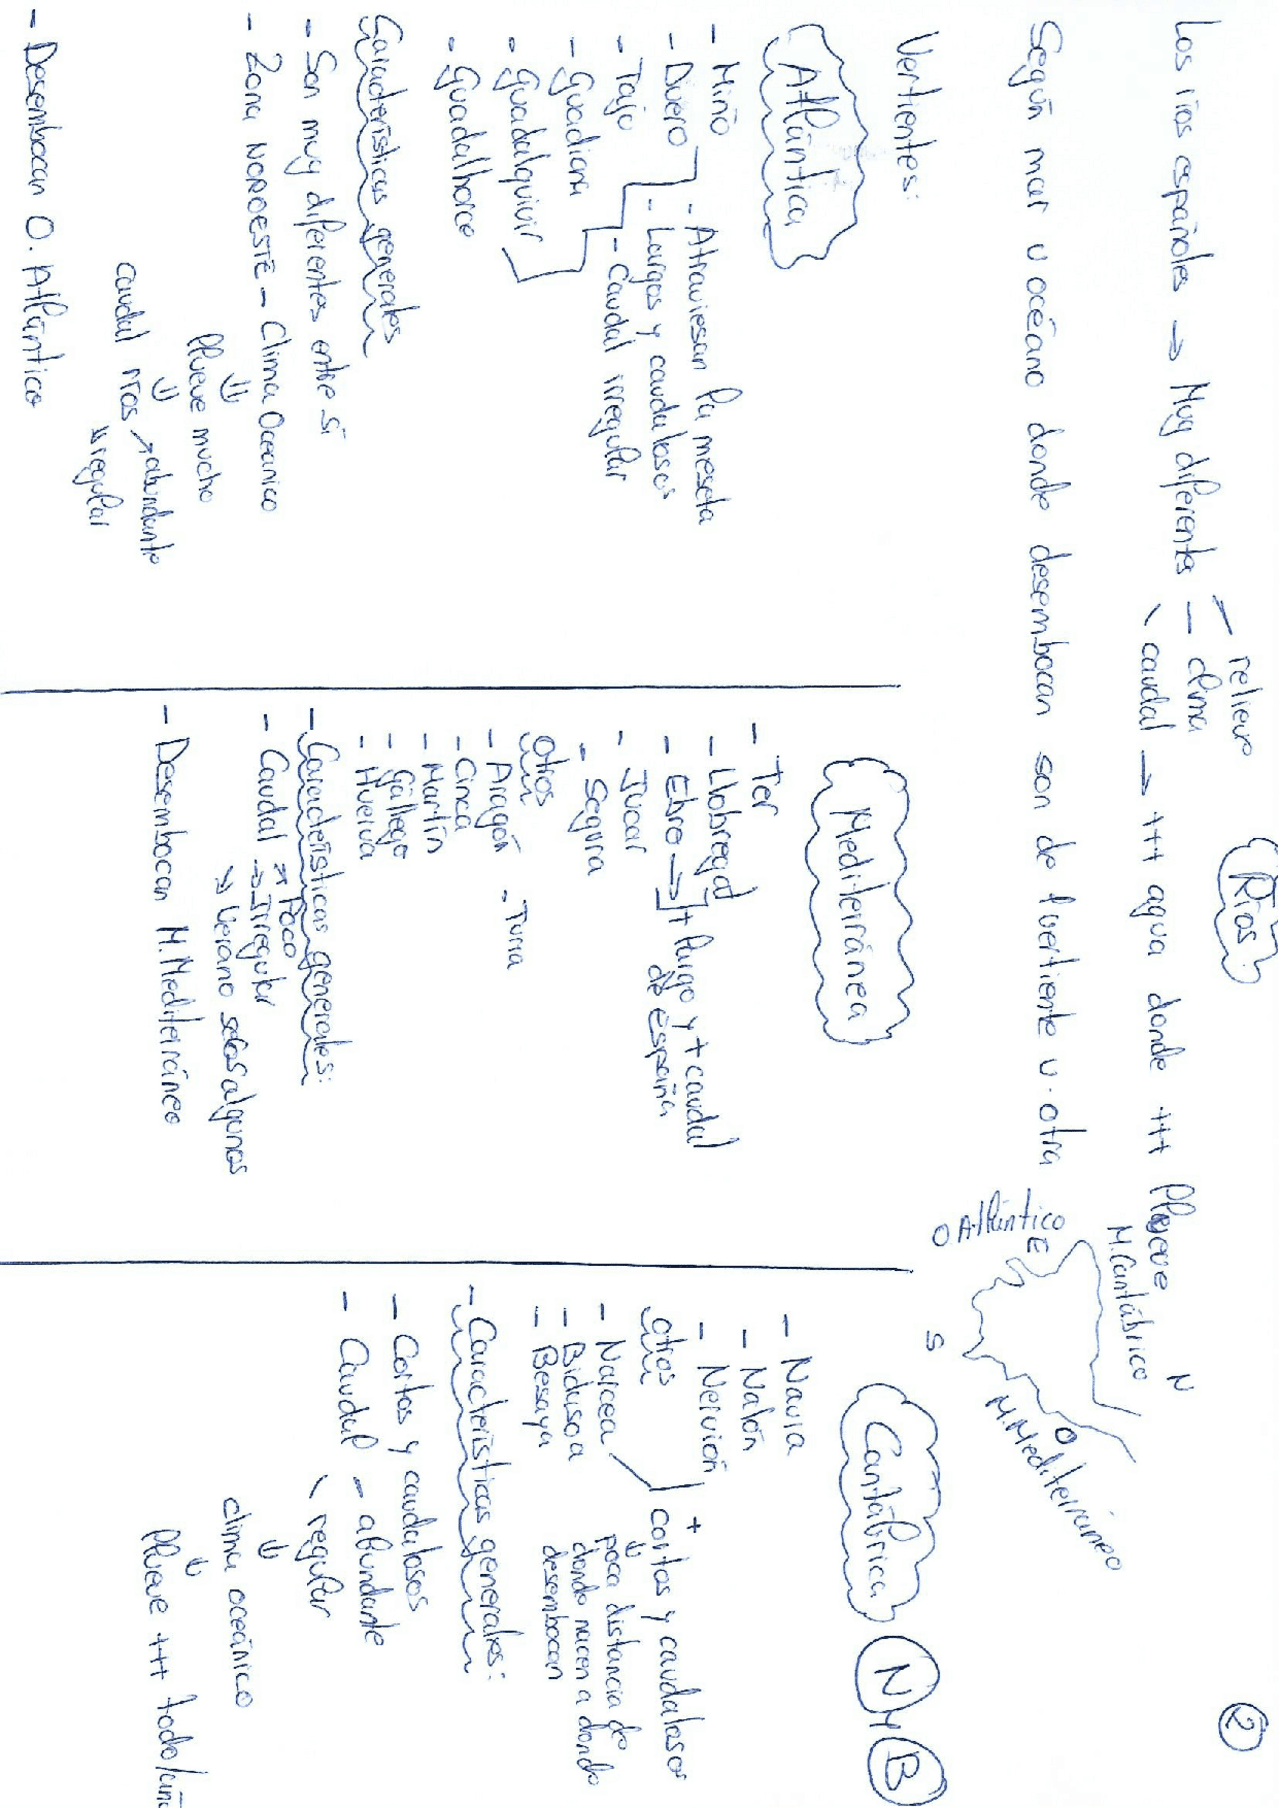 Ríos
2
Los ríos españoles → Muy diferentes
- relieve
- clima
- caudal → +++ agua donde +++ llueve
Según mar u océano donde desembocan son de 1 vertiente u otra
N
M. Cantábrico
E
O Atlántico
S
O
M. Mediterráneo
Vertientes:
Atlántica
- Miño
- Duero
- Tajo
- Guadiana
- Guadalquivir
- Guadalhorce
- Atraviesan la meseta
- Largos y caudalosos
- Caudal irregular
Características generales
- Son muy diferentes entre sí
- Zona NOROESTE - Clima Oceánico
⇓
llueve mucho
⇓
caudal ríos → abundante
↘ regular
- Desembocan O. Atlántico
Mediterránea
- Ter
- Llobregat
- Ebro → + largo y + caudal
de españa
- Jucar
- Segura
otros
- Aragón
- Turia
- Cinca
- Martín
- Gállego
- Huerva
- Características generales:
- Caudal ↗ Poco
→ Irregular
↘ Verano secos algunos
- Desembocan M. Mediterráneo
Cantábrica N y B
- Navia
- Nalón
- Nervión
otros
- Narcea
- Bidasoa
- Besaya
+
cortos y caudalosos
⇓
poca distancia de
donde nacen a donde
desembocan
- Características generales:
- Cortos y caudalosos
- Caudal - abundante
- regular
⇓
clima oceánico
⇓
llueve +++ todo/